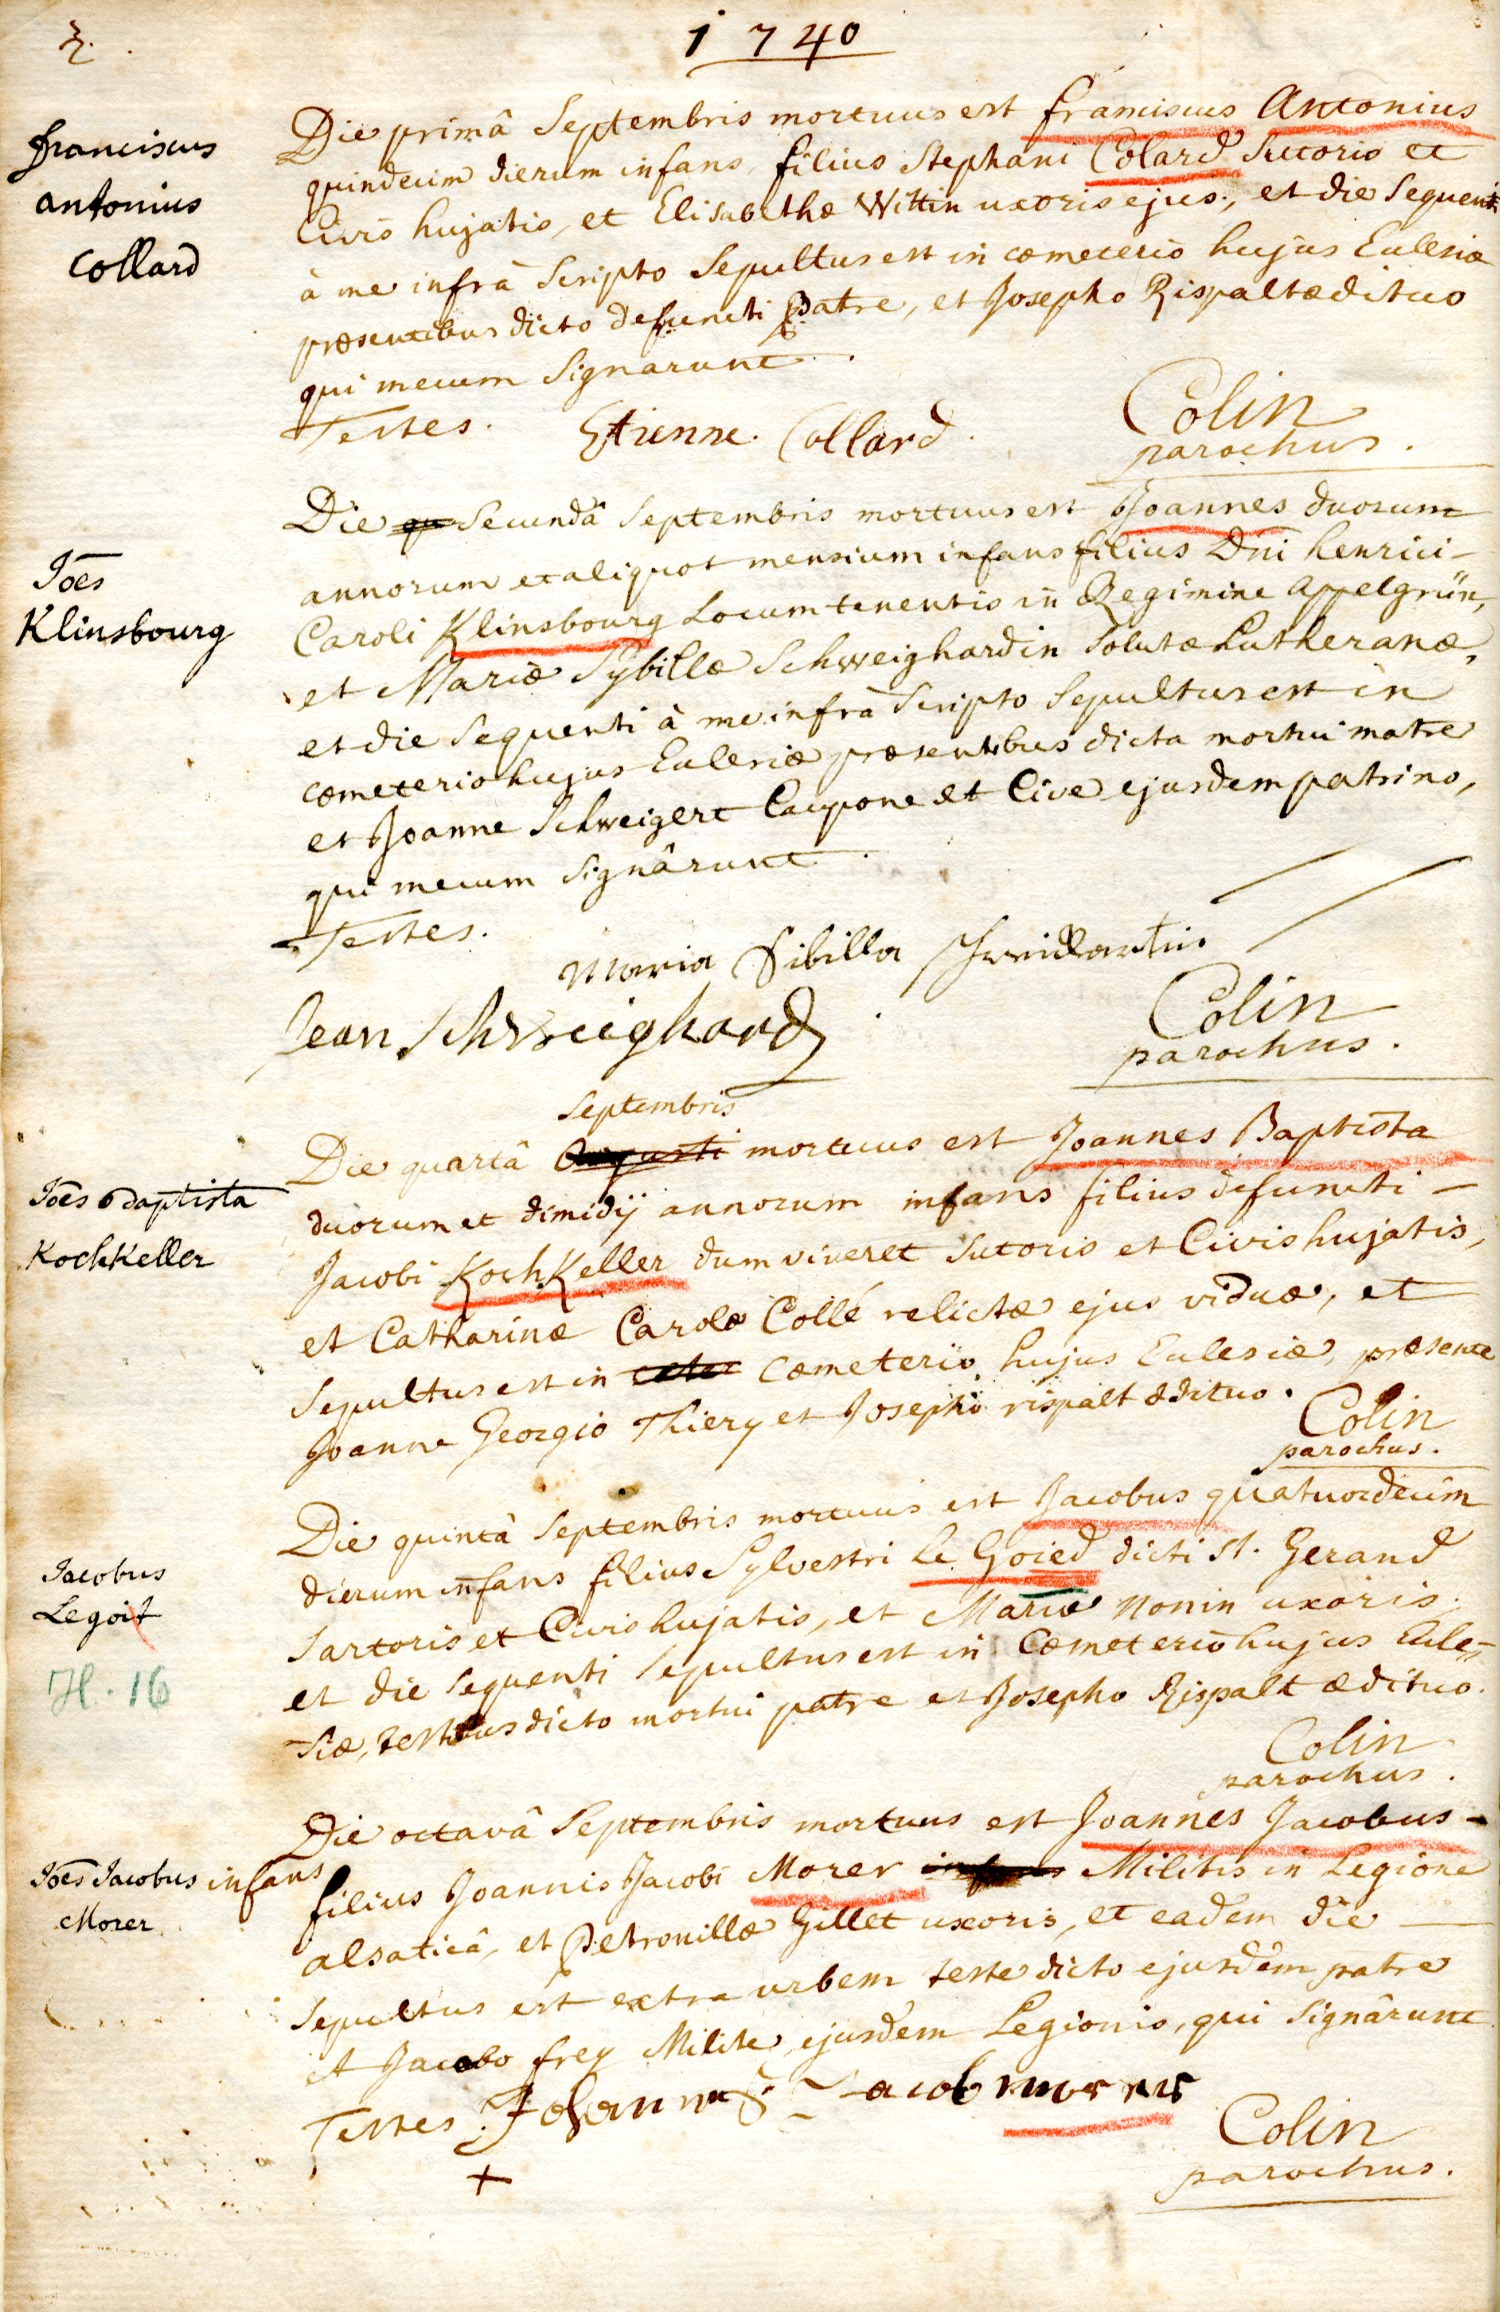 2.
1740
franciscus
antonius
Collard
Die primâ Septembris mortuus est franciscus Antonius
quindecim dierum infans filius Stephani Colard Sutoris et
Civis hujatis, et Elisabethæ Wittin uxoris ejus, et die Sequenti
à me infrà Scripto Sepultus est in cæmeterio hujus Ecclesiæ
præsentibus dicto defuncti Patre, et Josepho Rispalt ædituo
qui mecum Signarunt.
Testes. Etienne Collard.
Colin
parochus.
Jões
Klinsbourg
Die Secundâ Septembris mortuus est Joannes duorum
annorum et aliquot mensium infans filius Dni henrici
Caroli Klinsbourg Locumtenentis in Regimine Appelgrün,
et Mariæ Sybillæ Schweighardin Solutæ Lutheranæ,
et die Sequenti à me infrà Scripto Sepultus est in
cæmeterio hujus Ecclesiæ præsentibus dicta mortui matre
et Joanne Schweigert Caupone et Cive ejusdem patrino,
qui mecum Signârunt.
Testes.
Maria Sibilla
Jean Schweighard
Colin
parochus.
Septembris
Jões Baptista
KochKeller
Die quartâ Augusti mortuus est Joannes Baptista
duorum et dimidij annorum infans filius defuncti
Jacobi KochKeller dum viveret Sutoris et Civis hujatis,
et Catharinæ Carolæ Collé relictæ ejus viduæ, et
Sepultus est in cæmeterio hujus Ecclesiæ, præsente
Joanne Georgio Thiery et Josepho rispalt ædituo.
Colin
parochus.
Jacobus
Legoit
H. 16
Die quintâ Septembris mortuus est Jacobus quatuordecim
dierum infans filius Sylvestri Le Goied dicti St. Gerand
Sartoris et Civis hujatis, et Mariæ Nonin uxoris.
et die Sequenti Sepultus est in Cæmeterio hujus Eccle=
siæ, testibus dicto mortui patre et Josepho Rispalt ædituo.
Colin
parochus.
Jões Jacobus
Morer
Die octavâ Septembris mortuus est Joannes Jacobus
infans filius Joannis Jacobi Morer Militis in Legione
alsaticâ, et Petronillæ Gillet uxoris, et eadem die
Sepultus est extra urbem teste dicto ejusdem patre
et Jacobo frey Milite ejusdem Legionis, qui Signârunt
Testes. Johannes Jacob
+
Colin
parochus.